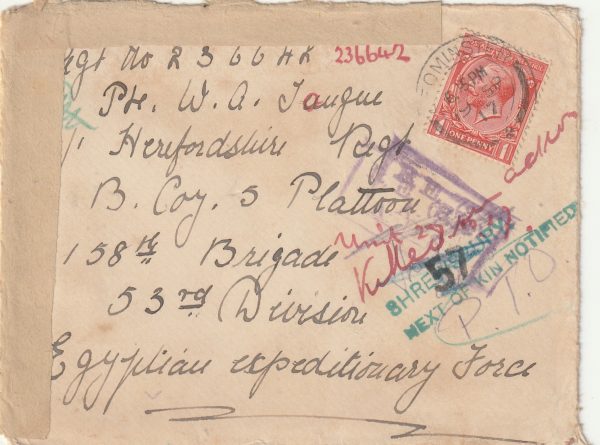 Regt No 236642 236642
Pte. W. A. Tangue
1/1 Herefordshire Regt
B. Coy. 5 Plattoon
158th Brigade
53rd Division
Egyptian expeditionary Force
5 PM
17
ONE PENNY
Unit
Killed
57
SHREWSBURY
NEXT OF KIN NOTIFIED
P.T.O